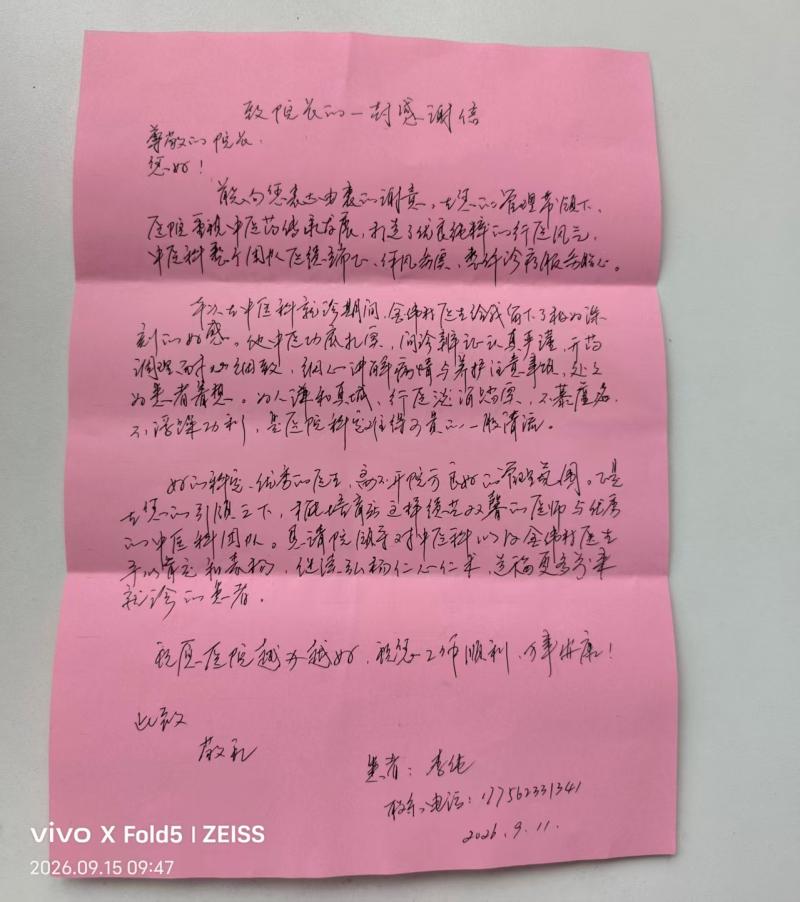 致院长的一封感谢信
尊敬的院长:
您好!
首先向您表达由衷的谢意,在您的管理带领下,
医院重视中医药传承发展,打造了优良纯粹的行医风气,
中医科整个团队医德端正、作风务实、整体诊疗服务贴心。
本次在中医科就诊期间,金伟村医生给我留下了极为深
刻的好感。他中医功底扎实,问诊辨证认真严谨,开药
调理耐心细致,细心讲解病情与养护注意事项,处处
为患者着想。为人谦和真诚,行医沉润踏实,不慕虚名、
不浮躁功利,是医院科室难得可贵的一股清流。
好的科室、优秀的医生,离不开院方良好的管理氛围。正是
在您的引领之下,才能培育出这样德艺双馨的医师与优秀
的中医科团队。恳请院领导对中医科以及金伟村医生
予以肯定和表扬,继续弘扬仁心仁术,造福更多前来
就诊的患者。
祝愿医院越办越好,祝您工作顺利、万事安康!
此致
敬礼
患者:李纯
联系电话:17562331341
2026.9.11.
vivo X Fold5 | ZEISS
2026.09.15 09:47